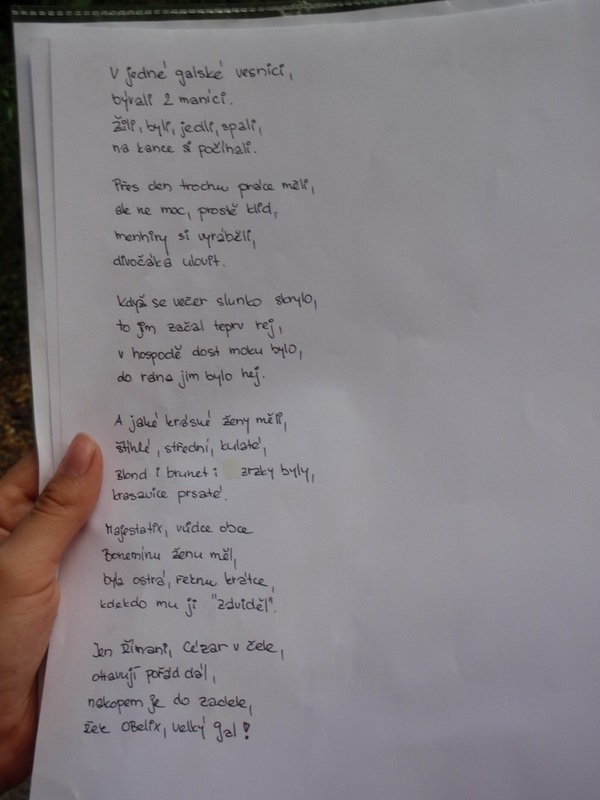 V jedné galské vesnici,
bývali 2 maníci.
Žili, byli, jedli, spali,
na kance si počíhali.
Přes den trochu práce měli,
ale ne moc, prostě klid,
menhiry si vyráběli,
divočáka ulovit.
Když se večer slunko skrylo,
to jim začal teprv rej,
v hospodě dost moku bylo,
do rána jim bylo hej.
A jaké krásné ženy měli,
štíhlé, střední, kulaté,
Blond i brunet i zrzky byly,
krasavice prsaté.
Majestatix, vůdce obce
Bonemínu ženu měl,
byla ostrá, řeknu krátce,
kdekdo mu ji "záviděl".
Jen Římani, Cézar v čele,
otravují pořád dál,
nakopem je do zadele,
řek Obelix, velký gal!